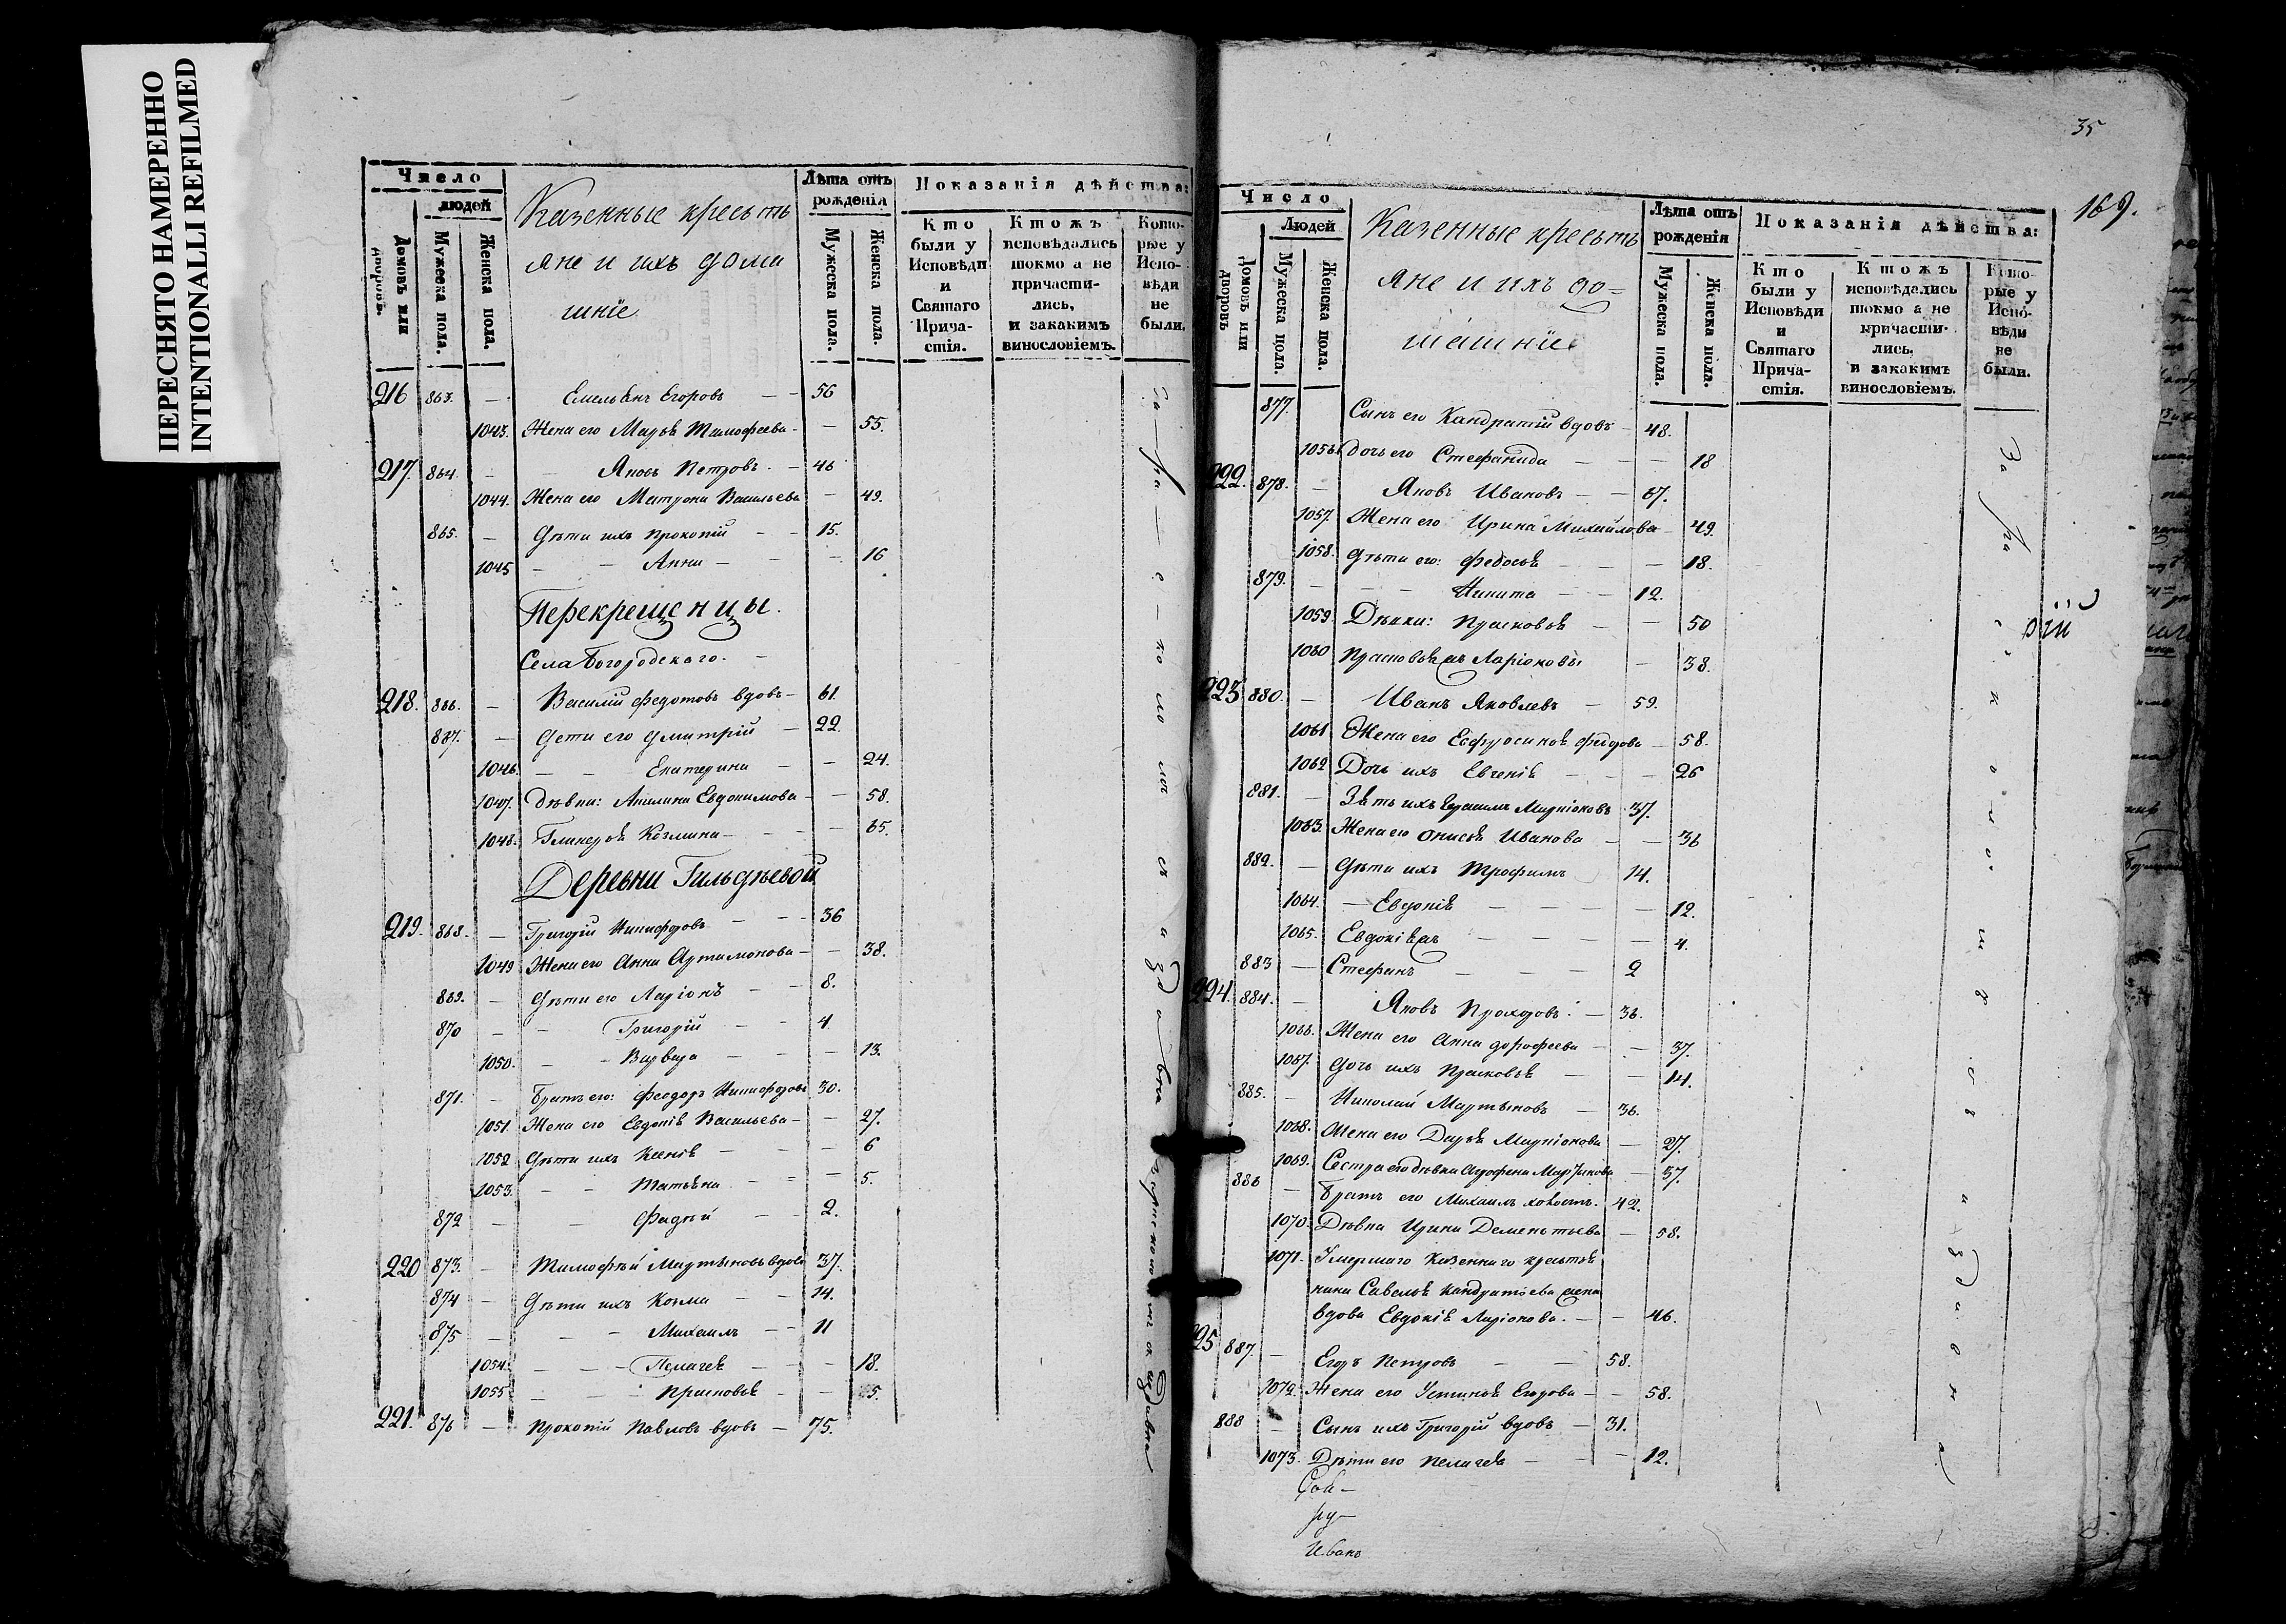 ПЕРЕСНЯТО НАМЕРЕННО
INTENTIONALLI REFILMED
Число
людей
Домовъ или дворовъ.
Мужеска пола.
Женска пола.
Казенные кресть
яне и ихъ дома
шнïе
Лѣта отъ рожденія
Мужеска пола.
Женска пола.
Показанія дѣйства:
Кто были у Исповѣди и Святаго Прича-стія.
Ктожъ исповѣдались токмо а не причасти-лись, и закакимъ винословіемъ.
Кото-рые у Испо-вѣди не были.
216 863. — Емельянъ Егоровъ — — 56
1043. Жена его Марья Тимофеева — — 55.
217. 864 — Яковъ Петровъ — 46
1044. Жена его Матрона Васильева — 49.
865. — Дѣти ихъ Прокопій — — 15.
1045 — — Анна — — 16
Перекрещенцы.
Села Богородскаго. —
218. 866. — Василій Федотовъ вдовъ — 61
867. — Дети его Дмитрій — 22.
1046. — — Екатерина — — 24.
1047. Дѣвки: Акилина Евдокимова — — 58.
1048. Гликерія Козмина — — — 65.
Деревни Гильдѣевой
219. 868. — Григорій Никифоровъ — — 36
1049 Жена его Анна Артамонова — — 38.
869. — Дѣти его Ларіонъ — — 8.
870 — — Григорій — — 4
1050. — — Варвара — — — 13.
871. — Братъ его: Феодоръ Никифоровъ 30.
1051. Жена его Евдокія Васильева — — 27.
1052 Дѣти ихъ Ксенія — — — 6
1053. — — Татьяна — — — 5.
872 — — Фадѣй — — 2.
220 873. — Тимофѣй Мартыновъ вдовъ 37.
874 — Дѣти ихъ Козма — — 14.
875 — — — Михаилъ — — 11
1054. — — — Пелагея — — — 18.
1055 — — — Прасковья — — 5.
221. 876 — Прокопій Павловъ вдовъ — 75.
35
169.
Число
Людей
Домовъ или дворовъ
Мужеска пола.
Женска пола.
Казенные кресть
яне и ихъ до=
машнïе
Лѣта отъ рожденія
Мужеска пола.
Женска пола.
Показанія дѣйства:
Кто были у Исповѣди и Святаго Прича-стія.
Ктожъ исповѣдались токмо а не причасти-лись, и закакимъ винословіемъ.
Кото-рые у Испо-вѣди не были.
877. Сынъ его Кандратій вдовъ — 48.
1056 Дочь его Стефанида — — — 18
222. 878. — Яковъ Ивановъ — — 67.
1057. Жена его Ирина Михайлова — 49.
1058. Дѣти его: Федосья — — — 18.
879. — — — Никита — — 12.
1059. Дѣвки: Прасковья — — 50
1060 Прасковья Ларіоновы — 38.
223 880. — Иванъ Яковлевъ — 59.
1061 Жена его Ефросинія Федорова — 58.
1062 Дочь ихъ Евгенія — — — 26
881. — Зять ихъ 37.
1063. Жена его Онисья Иванова — — 36
882. — Дѣти ихъ Трофимъ 14.
1064. — Евдокія — — — — 12.
1065. Евдокія — — — — 4.
883 — Стефанъ — — — 2
224 884. — Яковъ Прохоровъ — 36.
1066. Жена его Анна Дорофеева — — 37.
1067. Дочь ихъ Прасковья — — 14.
885. — Николай Мартыновъ — 36.
1068. Жена его Дарья — 27.
1069. Сестра его дѣвка Аграфена Мартынова — 57.
886 — Братъ его Михаилъ холостъ. 42.
1070. Дѣвка Ирина Дементьева — 58.
1071. Умершаго казеннаго крестья
нина Савелья Кандратьева жена
вдова Евдокія Ларіонова. — — 46.
225 887. — Егоръ Петровъ — — 58.
1072. Жена его Устинья Егорова — — 58.
888 — Сынъ ихъ Григорій вдовъ — 31.
1073. Дѣти его Пелагея — — — 12.
Иванъ